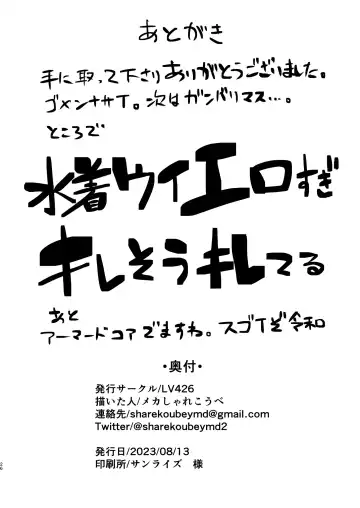 あとがき
手に取って下さりありがとうございました。
ゴメンナサイ。次はガンバリマス…。
ところで
水着ウイエロすぎ
キレそうキレてる
あと
アーマードコアでますね。スゴイぞ令和
・奥付・
発行サークル/LV426
描いた人/メカしゃれこうべ
連絡先/sharekoubeymd@gmail.com
Twitter/@sharekoubeymd2
発行日/2023/08/13
印刷所/サンライズ 様